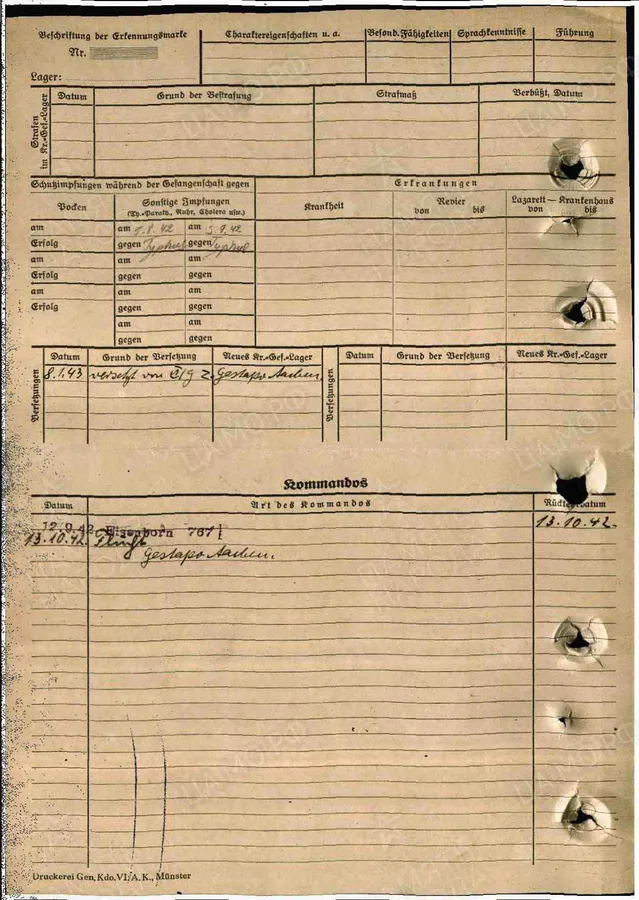 Beschriftung der Erkennungsmarke
Nr.
Lager:
Charaktereigenschaften u. a.
Besond. Fähigkeiten
Sprachkenntnisse
Führung
Strafen im Kr.-Gef.-Lager
Datum
Grund der Bestrafung
Strafmaß
Verbüßt, Datum
Schutzimpfungen während der Gefangenschaft gegen
Erkrankungen
Pocken
Sonstige Impfungen
(Ty.-Paraty., Ruhr, Cholera usw.)
Krankheit
Revier
von bis
Lazarett — Krankenhaus
von bis
am am 1.8.42 am 5.9.42
Erfolg gegen Typhus gegen Typhus
am am am
Erfolg gegen gegen
am am am
Erfolg gegen gegen
am am
gegen gegen
Versetzungen
Datum Grund der Versetzung Neues Kr.-Gef.-Lager
8.1.43 versetzt von z. Gestapo Aachen.
Versetzungen
Datum Grund der Versetzung Neues Kr.-Gef.-Lager
Kommandos
Datum Art des Kommandos Rückkehrdatum
12.9.42 Elsenborn 767 13.10.42.
13.10.42. Flucht
Gestapo Aachen.
Druckerei Gen. Kdo. VI. A. K., Münster
ЦАМО.РФ